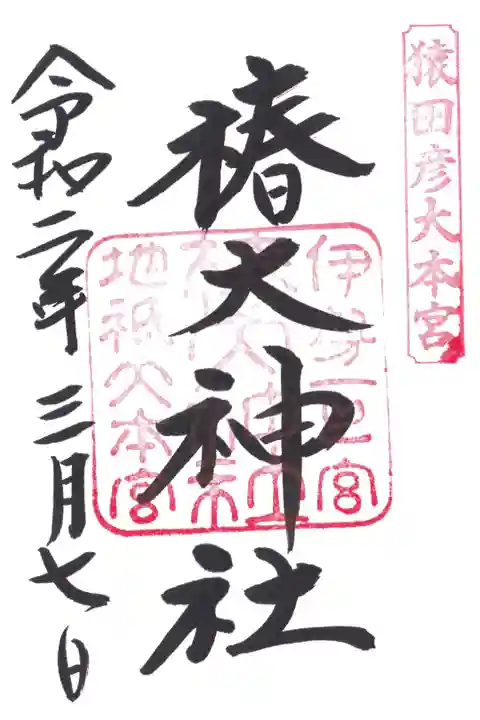 猿田彦大本宮
椿大神社
伊勢一之宮
地祇大本宮
令和二年三月七日